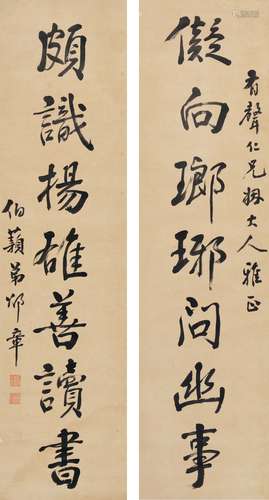 有聲仁兄姻大人雅正
儗向瑯琊問幽事
頗識揚雄善讀書
伯蘋弟邵章